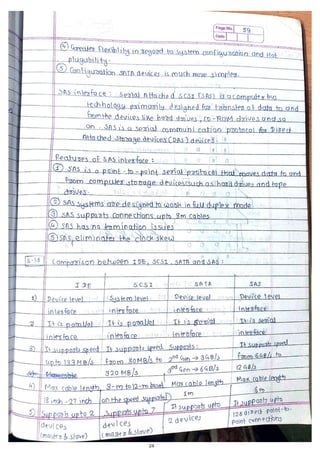 Page No. 59
Date
④ Greater flexibility in regard to system configuration and Hot
pluggability.
⑤ Configuration SATA devices is much more simpler.
SAS interface : Serial Attached SCSI (SAS) is a computer bus
technology primarily designed for transfer of data to and
from the devices like hard drives, CD-ROM drives and so
on. SAS is a serial communication protocol for Direct
Attached Storage devices (DAS) devices.
Features of SAS interface :
① SAS is a point-to-point serial protocol that moves data to and
from computer storage devices such as hard drives and tape
drives.
② SAS systems are designed to work in full duplex mode
③ SAS supports connections upto 8m cables
④ SAS has no termination issues
⑤ SAS eliminates the clock skew
Comparison between IDE, SCSI, SATA and SAS :
IDE SCSI SATA SAS
1) Device level System level Device level Device level
interface interface interface interface
2 It is parallel It is parallel It is serial It is serial
interface interface interface interface
3) It supports speed It supports speed Supports: It supports speed
upto 133 MB/s from 80MB/s to 2nd Gen → 3GB/s from 6GB/s to
320 MB/s 3rd Gen → 6GB/s 12GB/s
4) Max cable length 3-m to 12-m based Max cable length Max cable length
18 inch - 27 inch on the speed supported 1m 8m
5) Supports upto 2 Supports upto 7 It supports upto It supports upto
devices devices 2 devices 128 direct point-to-
(master & slave) (master & slave) point connections